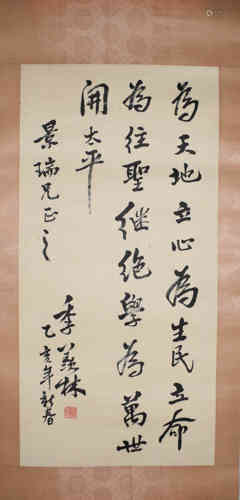 為天地立心為生民立命
為往聖继绝學為萬世
開太平
景瑞兄正之
季羨林
乙亥年新春